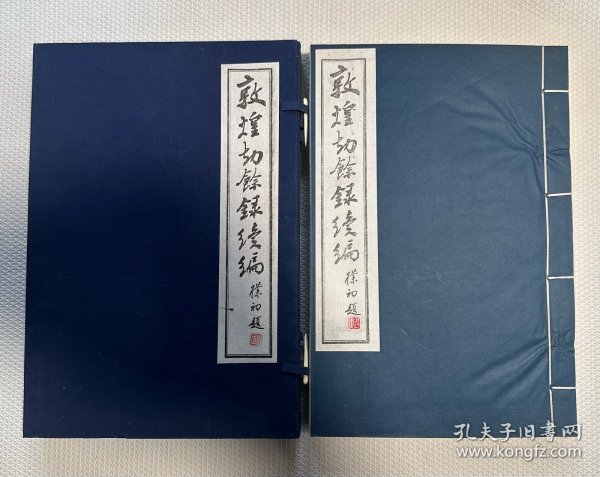 敦煌劫餘録續編
樸初題
敦煌劫餘録續編
樸初題
孔夫子旧书网
www.kongfz.com